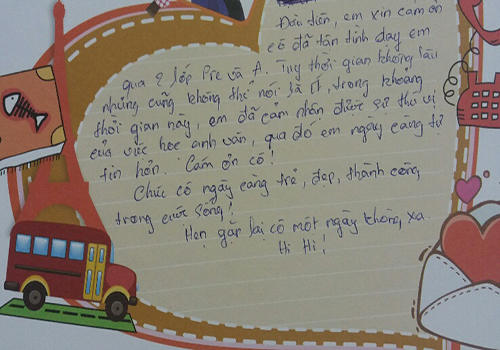 Đầu tiên, em xin cảm ơn
cô đã tận tình dạy em
qua 2 lớp Pre và A. Tuy thời gian không lâu
nhưng cũng không thể nói là ít, trong khoảng
thời gian này, em đã cảm nhận được sự thú vị
của việc học anh văn, qua đó em ngày càng tự
tin hơn. Cảm ơn cô!
Chúc cô ngày càng trẻ, đẹp, thành công
trong cuộc sống!
Hẹn gặp lại cô một ngày không xa.
Hi Hi!